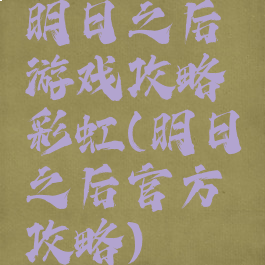 明日之后
游戏攻略
彩虹(明日
之后官方
攻略)